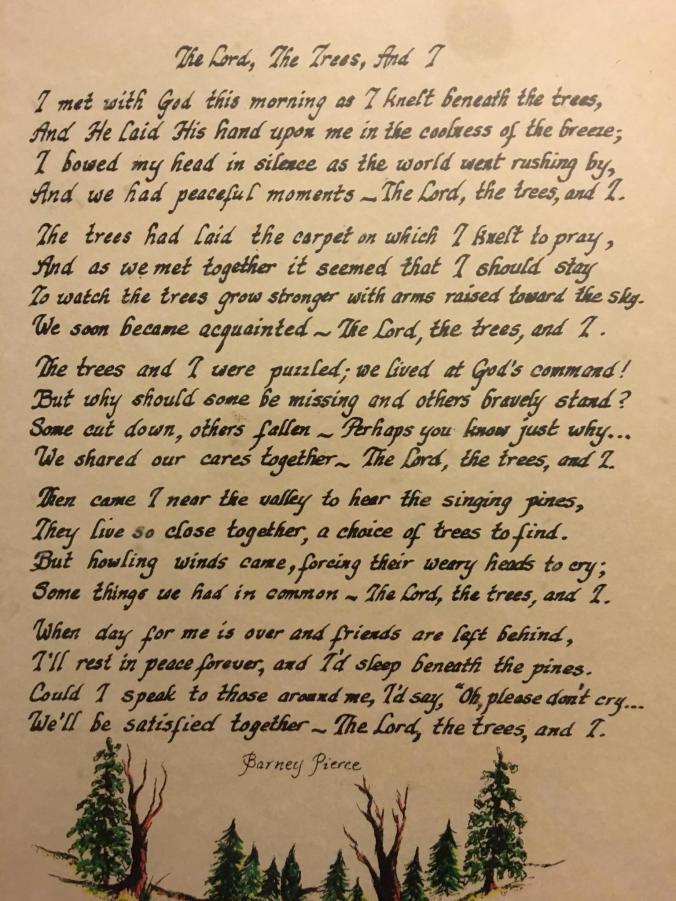 The Lord, The Trees, And I
I met with God this morning as I knelt beneath the trees,
And He laid His hand upon me in the coolness of the breeze;
I bowed my head in silence as the world went rushing by,
And we had peaceful moments ~ The Lord, the trees, and I.
The trees had laid the carpet on which I knelt to pray,
And as we met together it seemed that I should stay
To watch the trees grow stronger with arms raised toward the sky.
We soon became acquainted ~ The Lord, the trees, and I.
The trees and I were puzzled; we lived at God's command!
But why should some be missing and others bravely stand?
Some cut down, others fallen ~ Perhaps you know just why...
We shared our cares together ~ The Lord, the trees, and I.
Then came I near the valley to hear the singing pines,
They live so close together, a choice of trees to find.
But howling winds came, forcing their weary heads to cry;
Some things we had in common ~ The Lord, the trees, and I.
When day for me is over and friends are left behind,
I'll rest in peace forever, and I'd sleep beneath the pines.
Could I speak to those around me, I'd say, "Oh, please don't cry...
We'll be satisfied together ~ The Lord, the trees, and I.
Barney Pierce